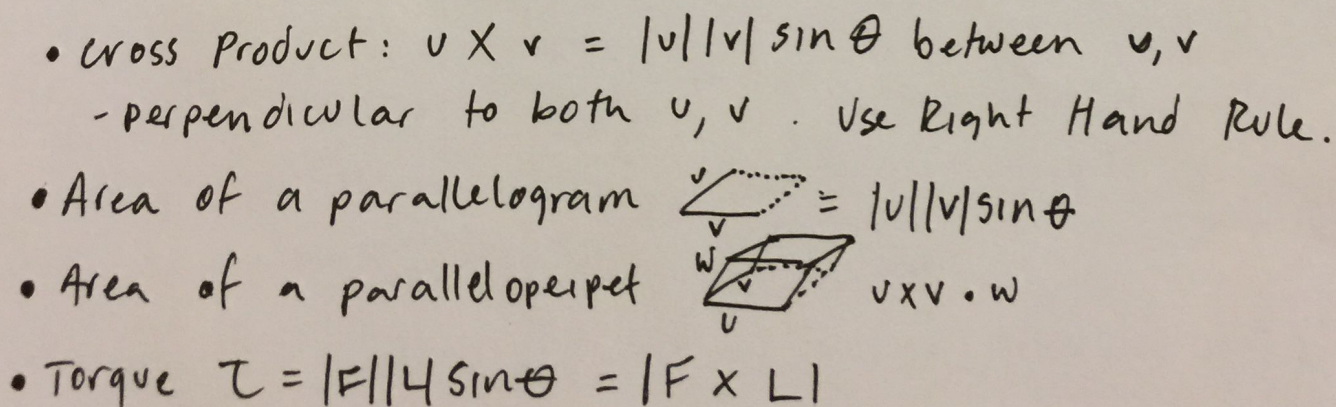 • Cross Product: u X v = |u||v| sin θ between u, v
- perpendicular to both u, v . Use Right Hand Rule.
• Area of a parallelogram u v = |u||v| sin θ
• Area of a parallelopeipet w v u u x v • w
• Torque τ = |F||L| sin θ = |F X L|